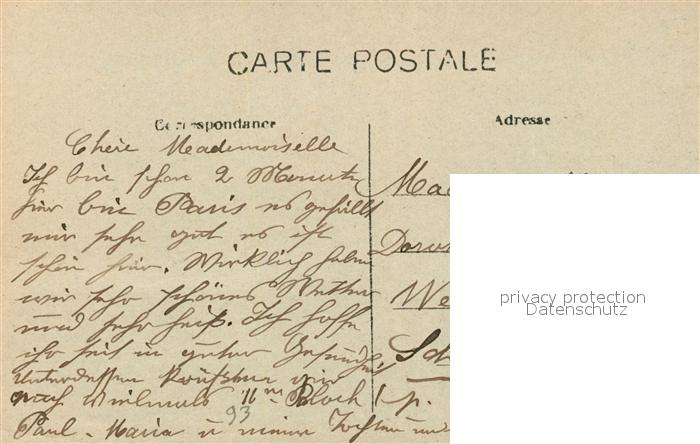 CARTE POSTALE
Correspondance
Adresse
Chère Mademoiselle
Ich bin schon 2 Monate
hier bin Paris es gefällt
mir sehr gut es ist
schön hier. Wirklich haben
wir sehr schönes Wetter
und sehr heiß. Ich hoffe
ihr seit in guter Gesundheit
unterdessen
noch vielmals Bloch
93
Paul. Maria u meine und
privacy protection
Datenschutz